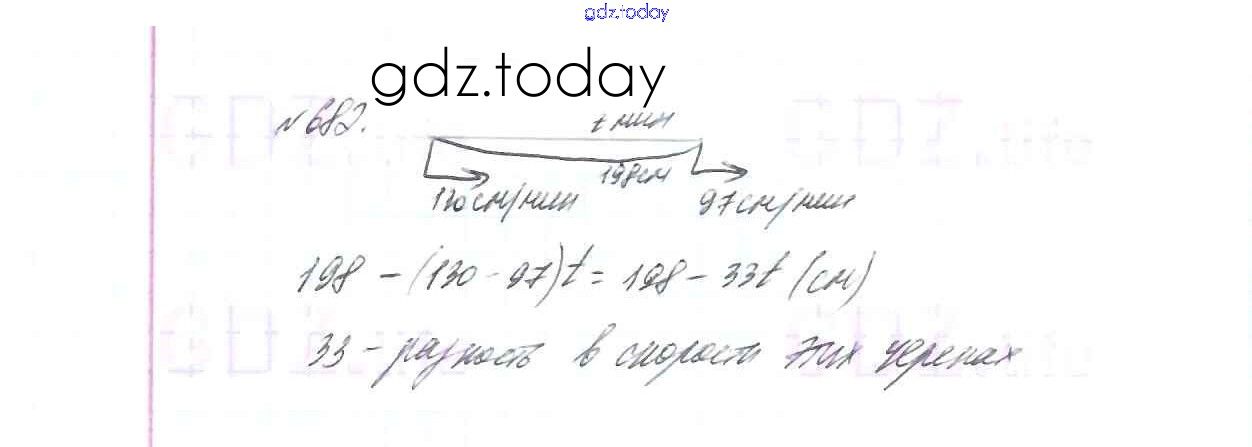 gdz.today
gdz.today
№682.
t мин
198см
130см/мин 97см/мин
198 - (130 - 97)t = 198 - 33t (см)
33 - разность в скорости этих черепах